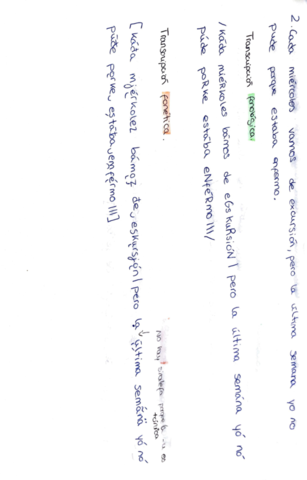 2. Cada miércoles vamos de excursión, pero la última semana yo no
pude porque estaba enfermo.
Transcripción fonológica
/káda miéRkoles bámos de eGskuRsión| pero la última semána yó nó
púde poRke estába eNféRmo|||/
Transcripción fonética.
no hay sinalefa porque la u es
tónica
[káđa mjérkolez bámoz đe‿eskursjón| pero la última semãna yó nó
púđe porke‿estába‿eɱférmo|||]